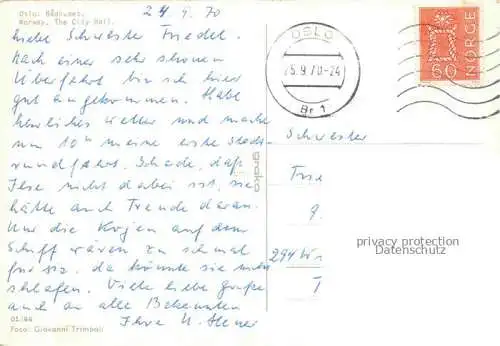 Oslo: Rådhuset.
Norway. The City Hall.
24. 9. 70
Liebe Schwester Friedel.
Nach einer sehr schönen
Überfahrt bin ich hier
gut angekommen. Habe
herrliches Wetter und mache
um 10 meine erste Stadt-
rundfahrt. Schade, daß
Ilse nicht dabei ist, sie
hätte auch Freude daran.
Nur die Kojen auf dem
Schiff wären zu schmal
für sie, da könnte sie nicht
schlafen. Viele liebe Grüße
auch an alle Bekannten
Ihre
01/44
Foto: Giovanni Trimboli
grako
OSLO
25.9.70-24
Br 1
NORGE
60
Schwester
294
privacy protection
Datenschutz